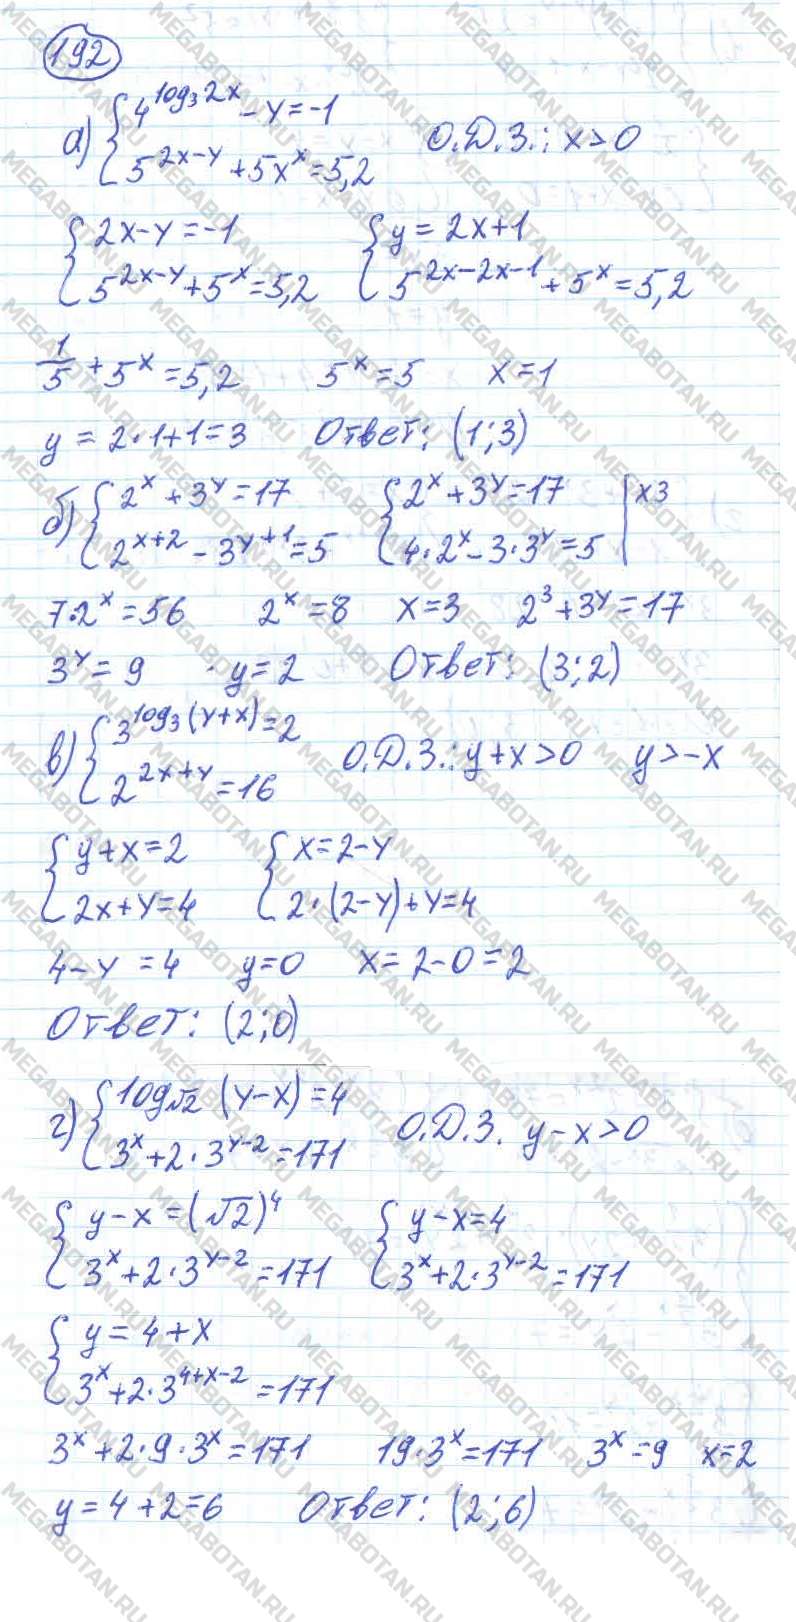 192
а) { 4^(log₃2x) - y = -1    О.Д.З.: x > 0
5^(2x-y) + 5x^x = 5,2
{ 2x - y = -1    { y = 2x + 1
5^(2x-y) + 5^x = 5,2    5^(2x-2x-1) + 5^x = 5,2
1/5 + 5^x = 5,2    5^x = 5    x = 1
y = 2·1+1 = 3    Ответ: (1; 3)
б) { 2^x + 3^y = 17    { 2^x + 3^y = 17 | x3
2^(x+2) - 3^(y+1) = 5    4·2^x - 3·3^y = 5
7·2^x = 56    2^x = 8    x = 3    2^3 + 3^y = 17
3^y = 9    y = 2    Ответ: (3; 2)
в) { 3^(log₃(y+x)) = 2    О.Д.З.: y + x > 0    y > -x
2^(2x+y) = 16
{ y + x = 2    { x = 2 - y
2x + y = 4    2·(2-y) + y = 4
4 - y = 4    y = 0    x = 2 - 0 = 2
Ответ: (2; 0)
г) { log√2 (y-x) = 4    О.Д.З. y - x > 0
3^x + 2·3^(y-2) = 171
{ y - x = (√2)^4    { y - x = 4
3^x + 2·3^(y-2) = 171    3^x + 2·3^(y-2) = 171
{ y = 4 + x
3^x + 2·3^(4+x-2) = 171
3^x + 2·9·3^x = 171    19·3^x = 171    3^x = 9    x = 2
y = 4 + 2 = 6    Ответ: (2; 6)
MEGABOTAN.RU